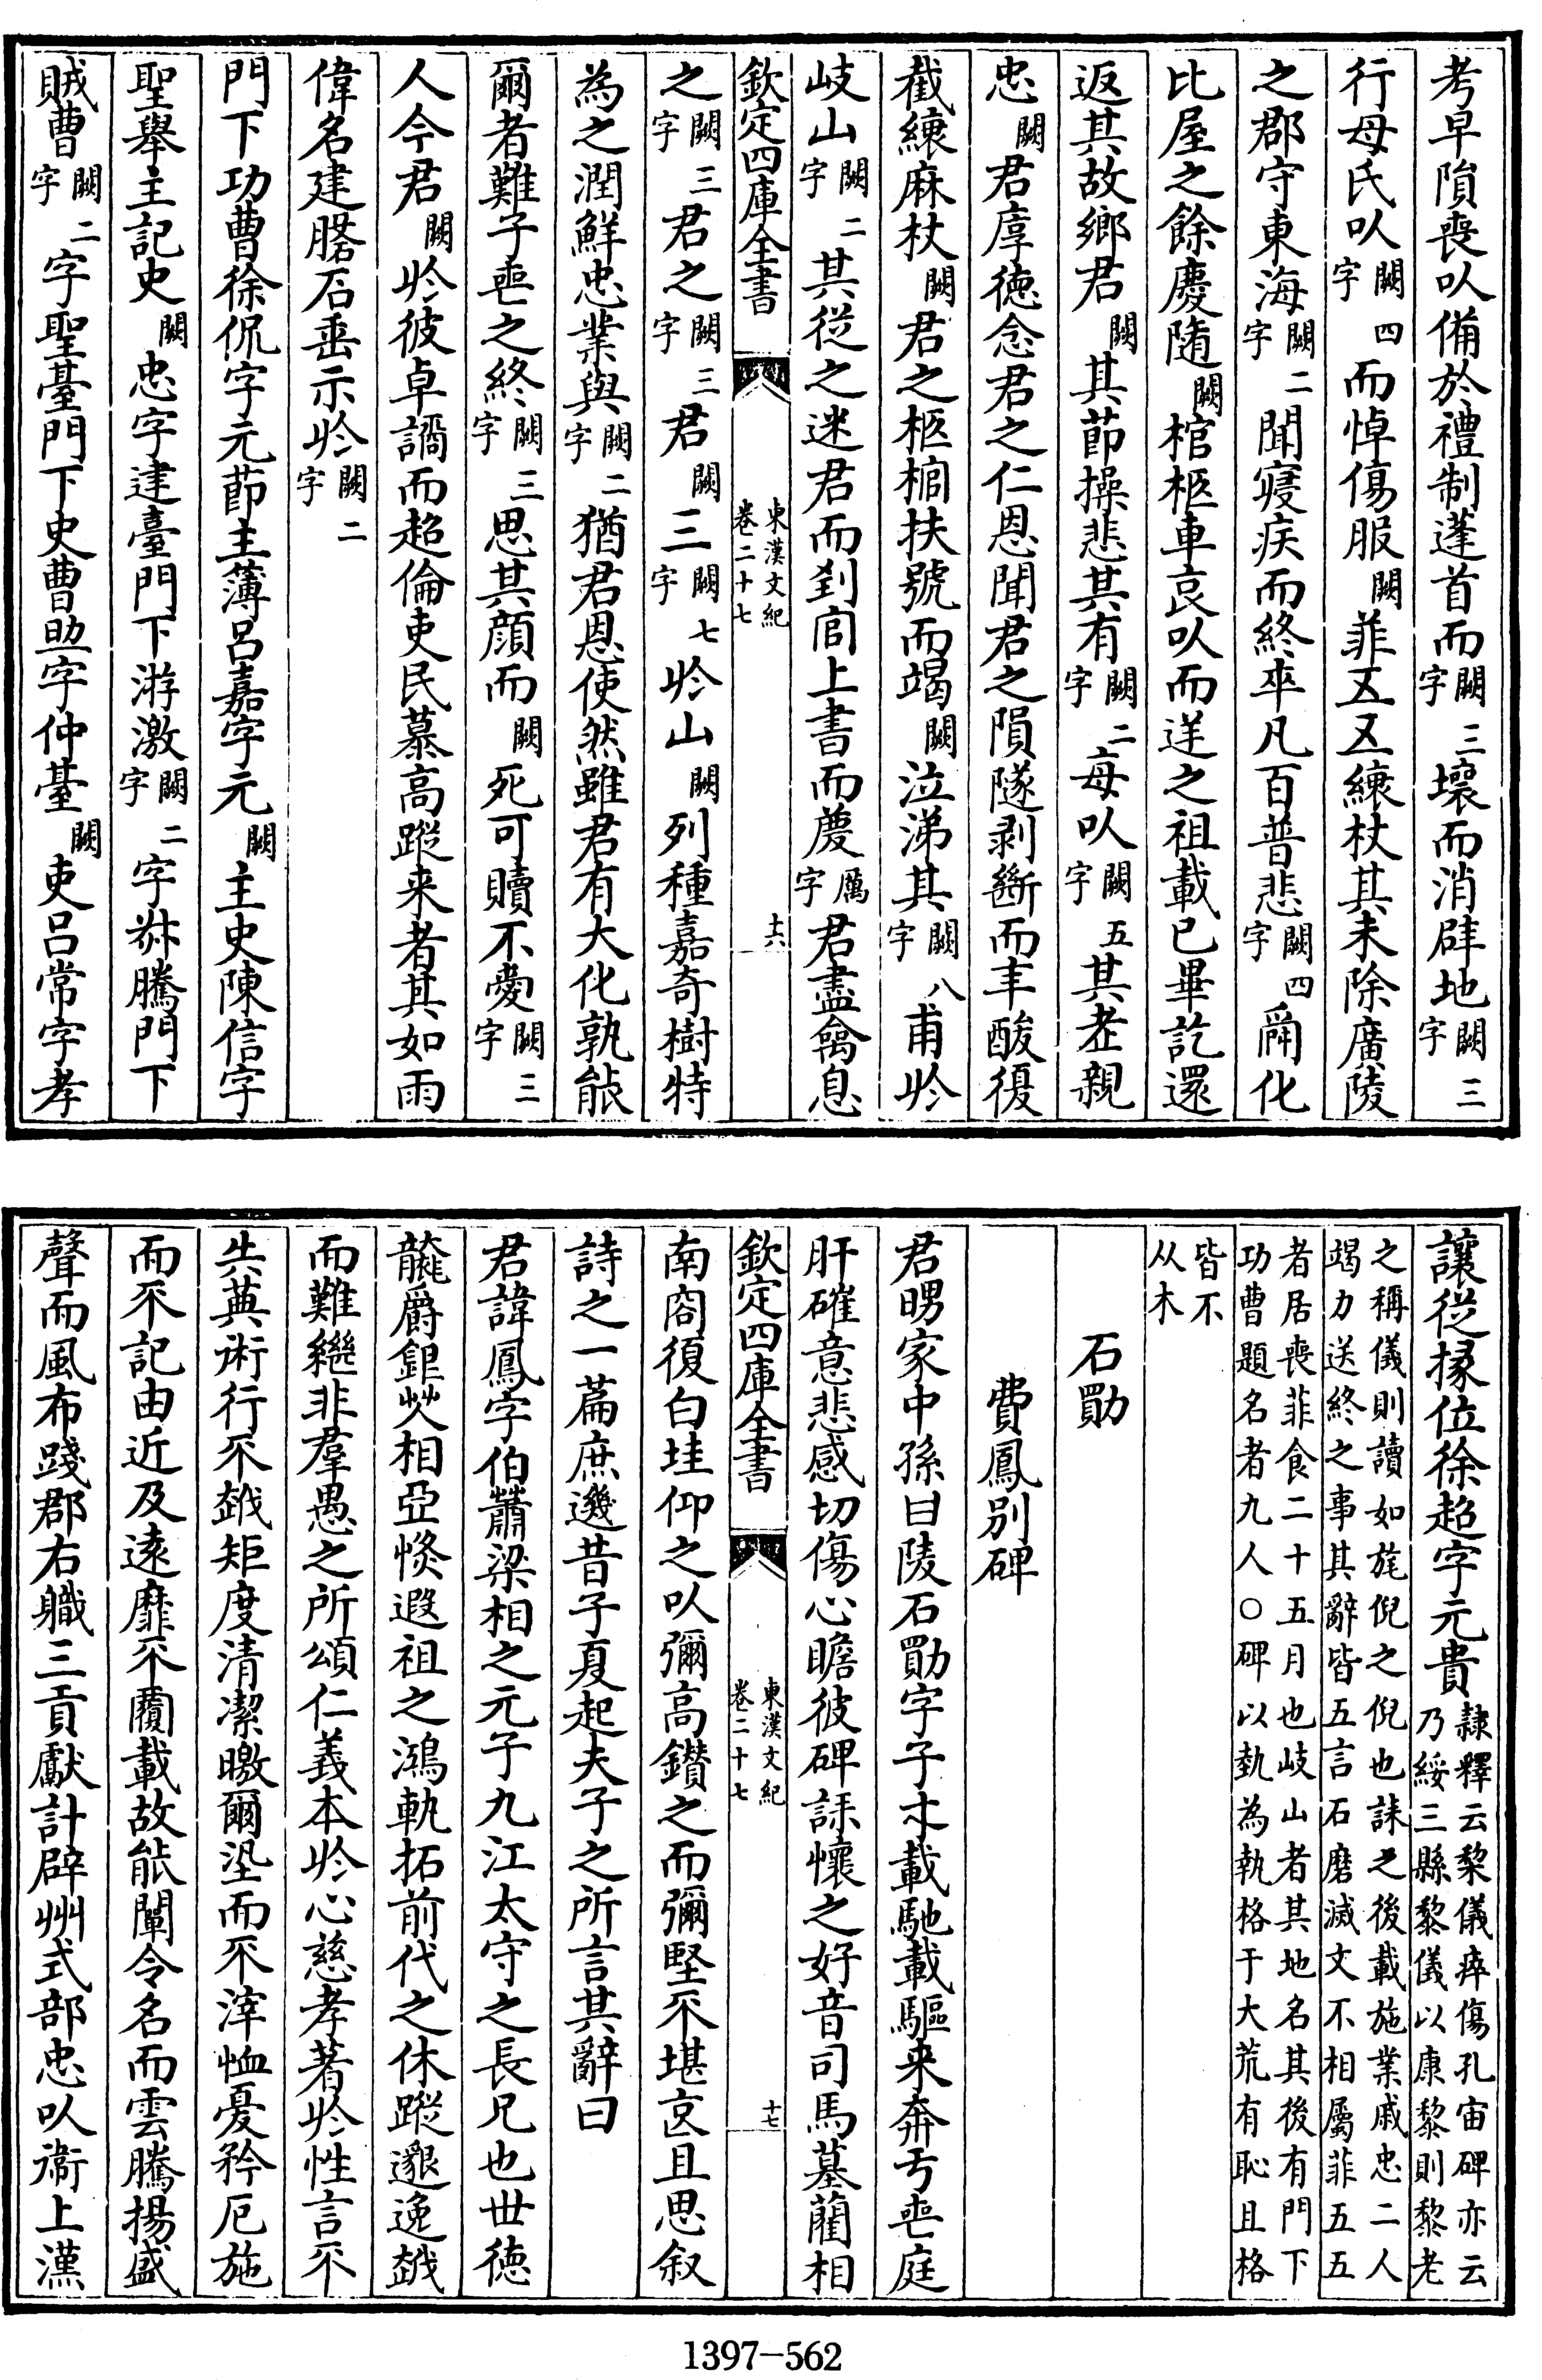 考早隕喪㕥備於禮制蓬首而闕三字壞而消辟地闕三字
行母氏㕥闕四字而悼傷服闕菲五五縗杖其未除廣陵
之郡守東海闕二字聞寑疾而終卒凡百普悲闕四字舜化
比屋之餘慶隨闕棺柩車哀㕥而送之祖載已畢訖還
返其故鄉君闕其莭操悲其有闕二字母㕥闕五字其老親
忠闕君厚徳念君之仁恩聞君之隕隧剥斷而丰酸復
截縗麻杖闕君之柩棺扶號而竭闕泣涕其闕八字甫於
岐山闕二字其從之迷君而到官上書而慶厲字君盡禽息
欽定四庫全書
東漢文紀
卷二十七
十六
之闕三字君之闕三字君闕三闕七字於山闕列種嘉奇樹特
為之潤鮮忠業與闕二字猶君恩使然雖君有大化孰能
爾者難子喪之終闕三字思其顔而闕死可贖不愛闕三字
人今君闕於彼卓譎而超倫吏民慕高蹤来者其如雨
偉名建䂮石垂示於闕二字
門下功曹徐侃字元莭主簿呂嘉字元闕主史陳信字
聖舉主記史闕忠字建臺門下游激闕二字字恭騰門下
賊曹闕二字字聖臺門下史曹助字仲臺闕吏呂常字孝
讓從掾位徐超字元貴隸釋云棃儀瘁傷孔宙碑亦云
乃綏三縣黎儀以康黎則黎老
之稱儀則讀如旄倪之倪也誄之後載施業戚忠二人
竭力送終之事其辭皆五言石磨滅文不相屬菲五五
者居喪菲食二十五月也岐山者其地名其後有門下
功曹題名者九人○碑以埶為執格于大荒有恥且格
皆不
从木
石勛
費鳳别碑
君甥家中孫曰陵石勛字子才載馳載驅来奔于喪庭
肝磪意悲感切傷心瞻彼碑誄懷之好音司馬墓蘭相
欽定四庫全書
東漢文紀
卷二十七
十七
南閤復白圭仰之㕥彌高鑚之而彌堅不堪哀且思叙
詩之一篇庶遘昔子夏起夫子之所言其辭曰
君諱鳳字伯蕭梁相之元子九江太守之長兄也世徳
龓爵銀艾相亞恢遐祖之鴻軌拓前代之休蹤邈逸越
而難繼非羣愚之所頌仁義本於心慈孝著於性言不
失典術行不越矩度清潔曒爾埿而不滓恤憂矜厄施
而不記由近及遠靡不覆載故能闡令名而雲騰揚盛
聲而風布踐郡右職三貢獻計辟州式部忠㕥衞上漢
1397-562